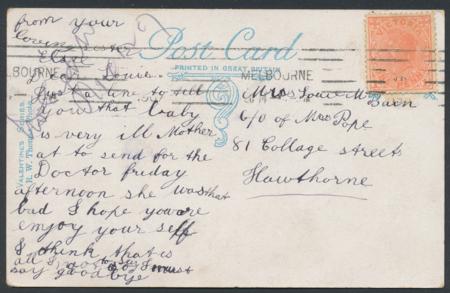 from your
loving sister
Elsie
Dear Louie
Just a line to tell
you that baby
is very ill Mother
at to send for the
Doctor friday
afternoon she was that
bad I hope you are
enjoy your self
I think that is
all I must
say goodbye
Post Card
PRINTED IN GREAT BRITAIN
MELBOURNE
MELBOURNE
VICTORIA
Miss Louie M Bain
C/O of Mrs Pope
81 Collage street
Hawthorne
VALENTINE'S SERIES